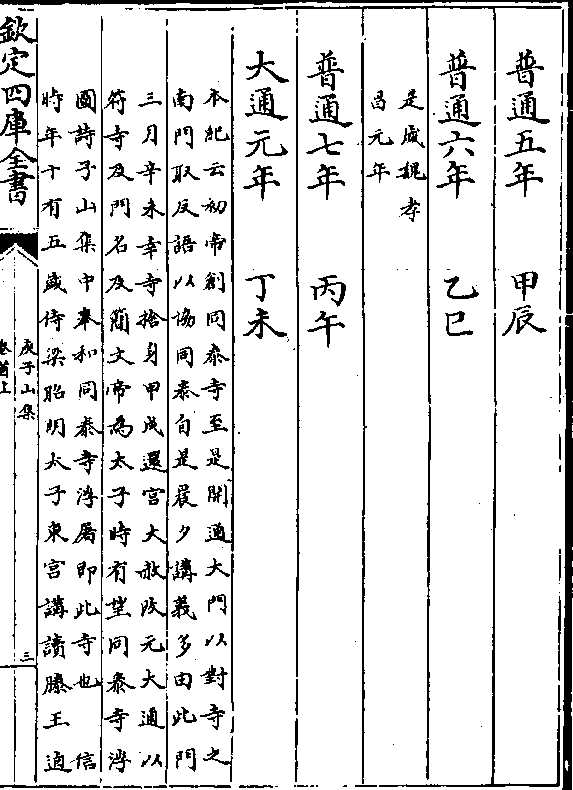 普通五年 甲辰
普通六年 乙巳
是歲魏孝
昌元年
普通七年 丙午
大通元年 丁未
本紀云初帝創同泰寺至是開通大門以對寺之
南門取反語以協同泰自是晨夕講義多由此門
三月辛未幸寺捨身甲戌還宫大赦改元大通以
符寺及門名及簡文帝為太子時有望同泰寺浮
圖詩子山集中奉和同泰寺浮屠即此寺也 信
時年十有五歲侍梁昭明太子東宫講讀滕王逌
欽定四庫全書
庾子山集
卷首上
三